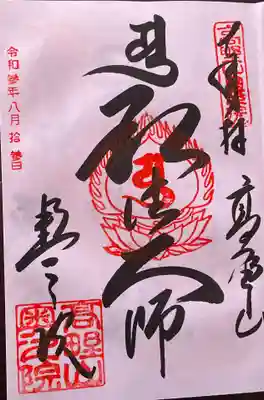 奉拝
高野山
弘法大師
奥之院
高野山
奥之院
令和参年八月拾参日